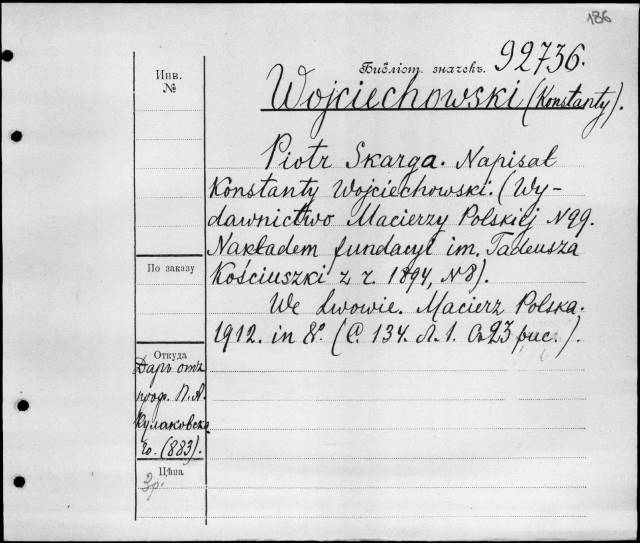 186
Библіот. значекъ. 92736.
Инв.
№
Wojciechowski (Konstanty).
Piotr Skarga. Napisał
Konstanty Wojciechowski. (Wy-
dawnictwo Macierzy Polskiej N 99.
Nakładem fundacyi im. Tadeusza
Kościuszki z r. 1894, N 8).
We Lwowie. Macierz Polska.
1912. in 8º. (С. 134. Л. 1. Съ 23 рис.).
По заказу
Откуда
Даръ отъ
проф. П. А.
Кулаковска
го. (883).
Цѣна
2 р.